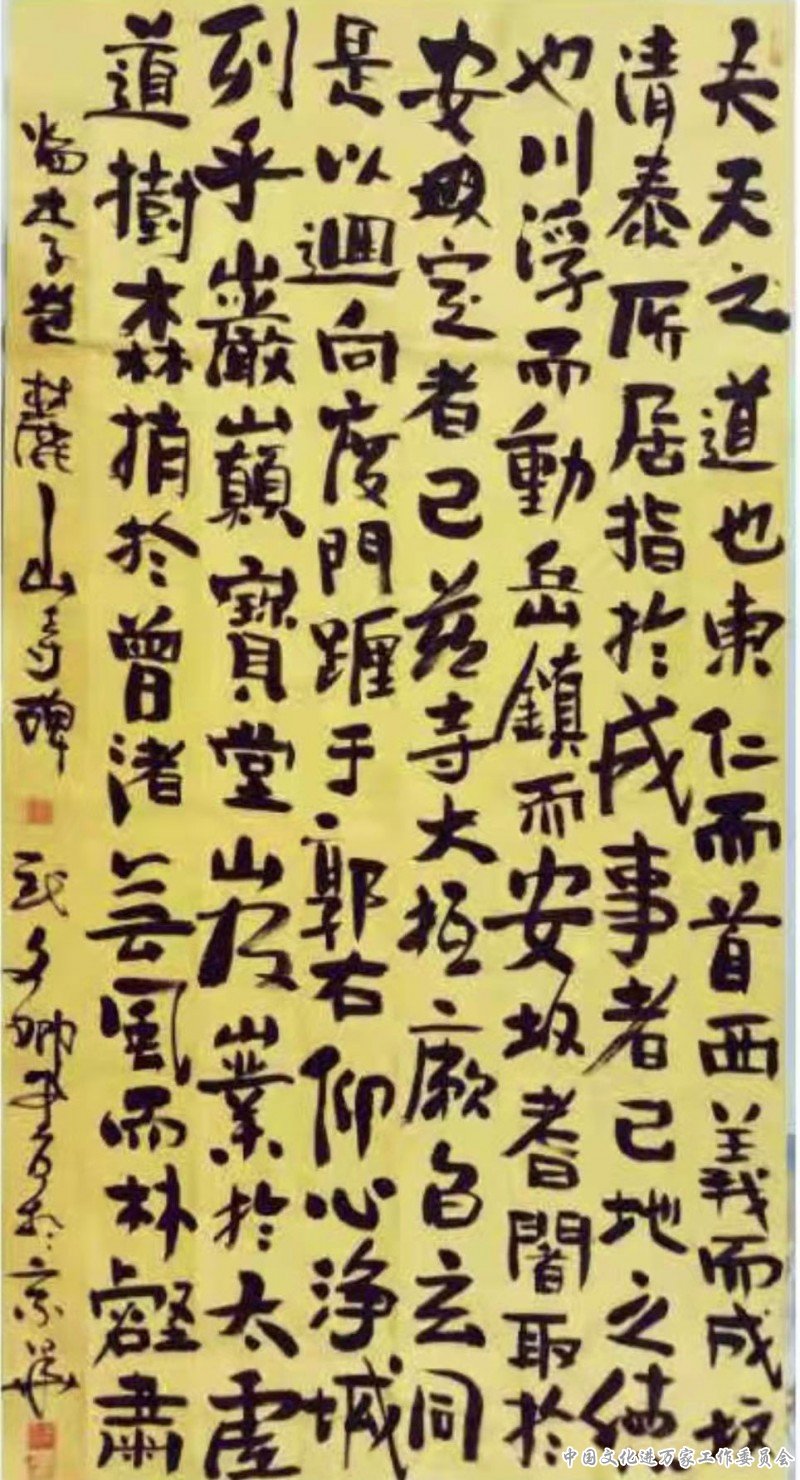 夫天之道也東仁而首西義而成故
清泰所居指於成事者已地之結
也川浮而動岳鎮而安故耆闍取於
安定者已茲寺大抵厥旨玄同
是以迴向度門躔于郭右仰心淨域
列乎巖巔寶堂岌嶪於太虛
道樹森梢於曾渚無風而林壑肅
臨李邕麓山寺碑 於京華
中国文化进万家工作委员会